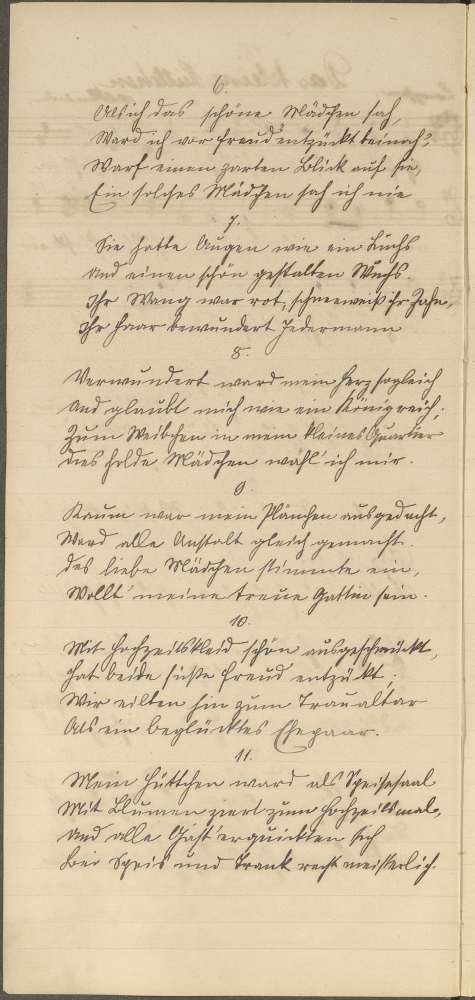 6.
Als ich das schöne Mädchen sah,
Ward ich vor Freud' entzückt beinah';
Warf einen zarten Blick auf sie,
Ein solches Mädchen sah ich nie
7.
Sie hatte Augen wie ein Luchs
Und einen schön gestalten Wuchs.
Ihr Wang war rot, schneeweiß ihr Zahn,
Ihr Haar bewundert Jedermann
8.
Verwundert ward mein Herz sogleich
Und glaubt mich wie ein Königreich;
Zum Weibchen in mein kleines Quartier
Dies holde Mädchen wähl' ich mir.
9.
Kaum war mein Plänchen ausgedacht,
Ward alle Anstalt gleich gemacht.
Das liebe Mädchen stimmte ein,
Wollt' meine treue Gattin sein.
10.
Mit Hochzeitskleid schön ausgeschmückt,
Hat beide süße Freud entzückt;
Wir eilten hin zum Traualtar
Als ein beglücktes Ehepaar.
11.
Mein Hüttchen ward als Speisesaal
Mit Blumen ziert zum Hochzeitsmal,
Und alle Gäst' erquickten sich
Bei Speis und Trank recht meisterlich.